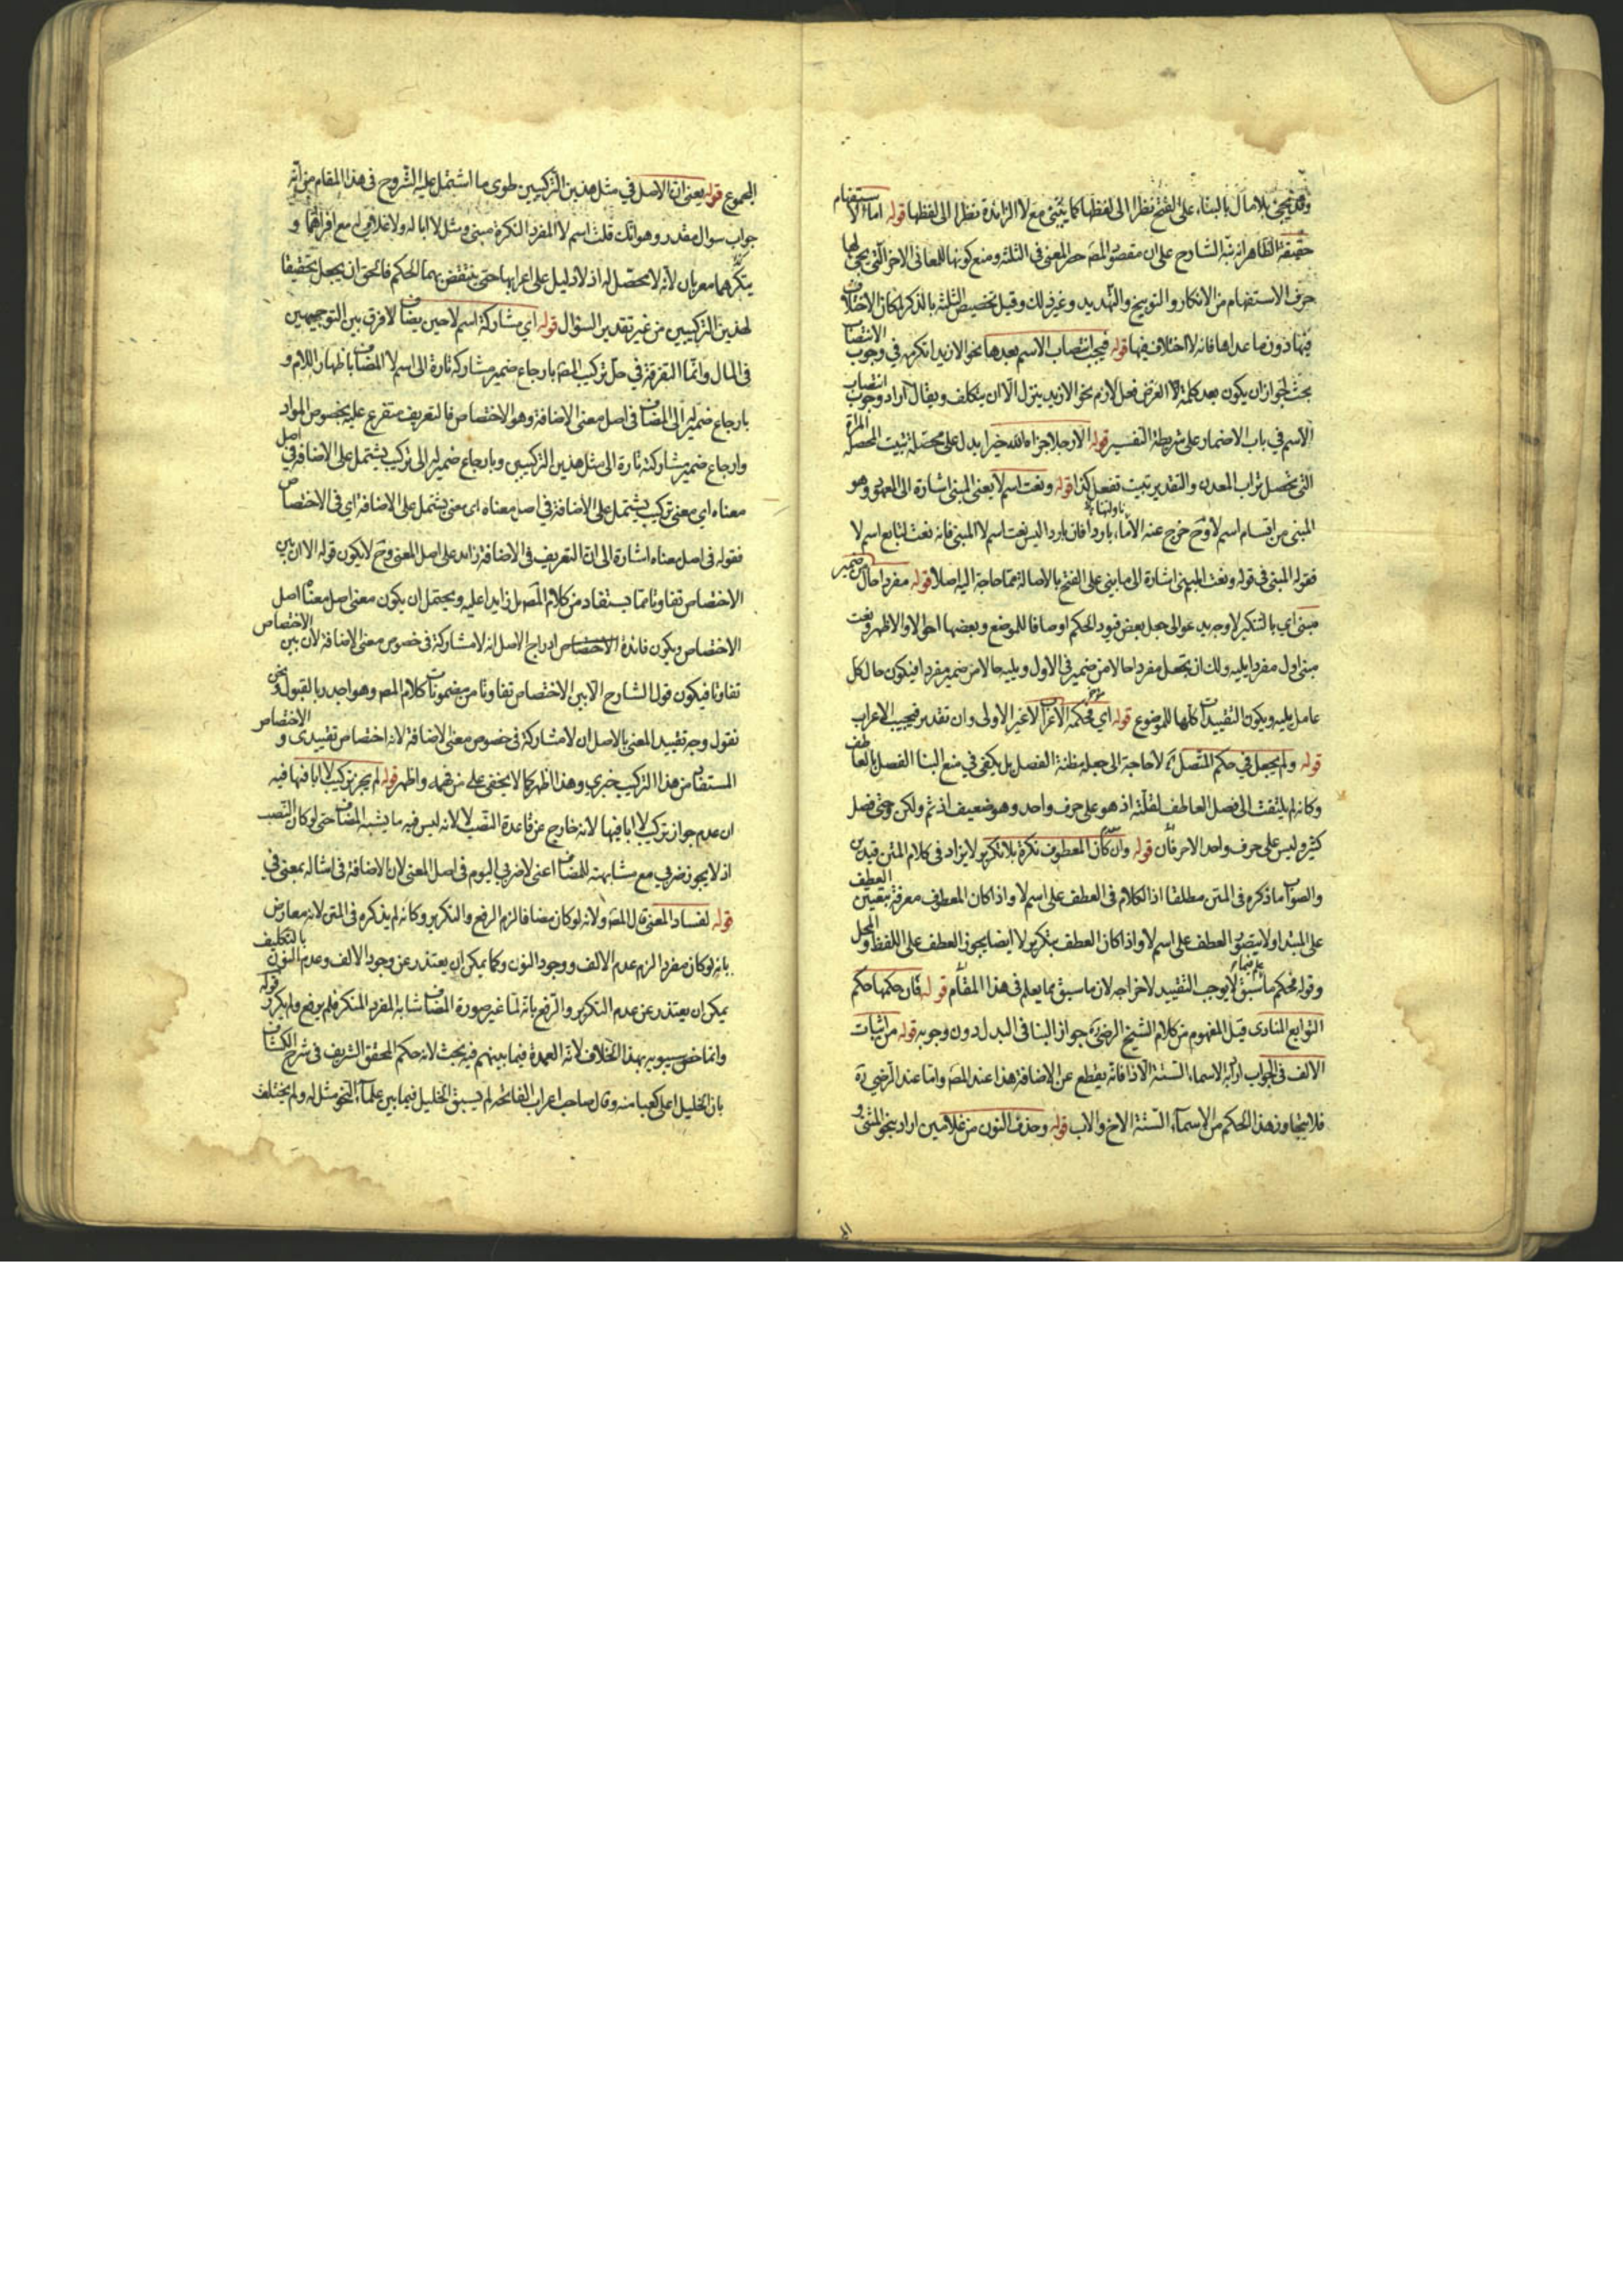 وقد يجئ بلا مال بالبناء على الفتح نظرا الى لفظها كما يبنى مع لا الزائدة نظرا الى لفظها قوله اما الاستفهام
حقيقة الظاهر انه نبه الشارح على ان مقصود المص حصر المعنى في الثلثة ومنع كونها للمعاني الاخر التي يجئ لها
حرف الاستفهام من الانكار والتوبيخ والتهديد وغير ذلك وقيل تخصيص الثلثة بالذكر لمكان الاختلاف
فيها دون ما عداها فانه لا اختلاف فيها قوله فيجب انتصاب الاسم بعدها نحو الا زيدا تكرمه في وجوب الانتصاب
بحث لجواز ان يكون بعد كلمة الا العرض فعل لازم نحو الا زيد ينزل الا ان يتكلف ويقال اراد وجوب انتصاب
الاسم في باب الاضمار على شريطة التفسير قوله الا رجلا جزاه الله خيرا يدل على محصلة تبيت المحصلة المرأة
التي تحصل تراب المعدن والتقدير تبيت تفعل كذا قوله ونعت اسم لا يعني المبنى اشارة الى المعهود وهو
المبنى من اقسام اسم لا وح خرج عنه الا ماء باردا فان باردا ليس نعت اسم لا المبنى فانه نعت لتابع اسم لا
فقوله المبنى في قوله ونعت المبنى اشارة الى ما بني على الفتح بالاصالة مما حاجة اليه اصلا قوله مفردا حال من ضمير
مبنى اي بالتنكير لا وجه يدعو الى جعل بعض قيود الحكم اوصافا للموضع وبعضها احوالا والاظهر ونعت
مبنى اول مفرد يليه ولك ان تجعل مفردا حالا من ضمير في الاول ويليه حالا من ضمير مفردا فيكون حال كل
عامل يليه ويكون التقييدات كلها للموضوع قوله اي فحكمه الاعراب لا غير الاولى وان تقدير فيجب الاعراب
قوله ولم يجعل في حكم المتصل لا حاجة الى جعله مظنة الفصل بل يكفي في منع البنا الفصل بالعاطف
وكانه لم يلتفت الى فصل العاطف لقلته اذ هو على حرف واحد وهو ضعيف اذ ثم ولكن وحتى فصل
كثير وليس على حرف واحد الا حرفان قوله وان كان المعطوف نكرة بلا تكرير لا يزاد في كلام المتن قيدين
والصواب ما ذكره في المتن مطلقا اذ الكلام في العطف على اسم لا واذا كان المعطوف معرفة يتعين العطف
على المبتدا ولا يتصور العطف على اسم لا واذا كان العطف بتكرير لا ايضا يجوز العطف على اللفظ والمحل
وقوله فحكم ما سبق لا يوجب التقييد لاخراجه لان ما سبق مما يعلم في هذا المقام قوله فان حكمها حكم
التوابع المنادى قيل المفهوم من كلام الشيخ الرضي جواز البنا في البدل دون وجوبه قوله من اثبات
الالف في الجواب اراد به الاسماء الستة الا ذا فانه يقطع عن الاضافة هذا عند المص واما عند الرضي ره
فلا يتجاوز هذا الحكم من الاسماء الستة الاخ والاب قوله وحذف النون من غلامين اراد بنحو المثنى و
المجموع قوله يعني ان الاصل في مثل هذين التركيبين طوى ما اشتمل عليه الشروح في هذا المقام من انه
جواب سوال مقدر وهو انك قلت اسم لا المفرد النكرة مبنى ومثل لا ابا له ولا غلامي له مع افرادهما و
تنكرهما معربان لانه لا محصل له اذ لا دليل على اعرابهما حتى ينتقض بهما الحكم فالحق ان يجعل تحقيقا
لهذين التركيبين من غير تقدير السؤال قوله اي مشاركة اسم لا حين يضاف لا فرق بين التوجيهين
في المال وانما التفرقة في حل تركيب المتن بارجاع ضمير مشاركته تارة الى اسم لا المضاف باظهار اللام و
بارجاع ضمير له الى المضاف في اصل معنى الاضافة وهو الاختصاص فالتعريف متفرع عليه بخصوص المواد
وارجاع ضمير مشاركته تارة الى مثل هذين التركيبين وبارجاع ضمير له الى تركيب يشتمل على الاضافة في اصل
معناه اي معنى تركيب يشتمل على الاضافة في اصل معناه اي معنى يشتمل على الاضافة اي في الاختصاص
فقوله في اصل معناه اشارة الى ان التعريف في الاضافة زائد على اصل المعنى وح لا يكون قوله الا ان بين
الاختصاص تفاوتا مما يستفاد من كلام المص بل زايدا عليه ويحتمل ان يكون معنى اصل معناه اصل
الاختصاص ويكون فائدة ادراج الاصل انه لا مشاركة في خصوص معنى الاضافة لان بين الاختصاص
تفاوتا فيكون قول الشارح الا بين الاختصاص تفاوتا من مضمونات كلام المص وهو اجدر بالقبول ونحن
نقول وجه تقييد المعنى بالاصل ان لا مشاركة في خصوص معنى الاضافة لانه اختصاص تقييدى و الاختصاص
المستفاد من هذا التركيب خبري وهذا اظهر كما لا يخفى على من فهمه واظهر قوله لم يجز تركيب لا ابا فيها فيه
ان عدم جواز تركيب لا ابا فيها لانه خارج عن قاعدة النصب لا لانه ليس فيه ما يشبه المضاف حتى لو كان النصب
اذ لا يجوز ضربي مع مشابهته للمضاف اعني لا ضربي اليوم في اصل المعنى لان الاضافة في امثاله بمعنى في
قوله لفساد المعنى قال المص ولانه لو كان مضافا لزم الرفع والتكرير وكانه لم يذكره في المتن لانه معارض
بانه لو كان مفردا لزم عدم الالف ووجود النون وكما يمكن ان يعتذر عن وجود الالف وعدم النون بالتكليف
يمكن ان يعتذر عن عدم التكرير والرفع بانه لما غير صورة المضاف شابه المفرد المنكر فلم يرفع ولم يكرر قوله
وانما خص سيبويه بهذا الخلاف لانه العمدة فيما بينهم فيه بحث لانه حكم المحقق الشريف في شرح الكشاف
بان الخليل اعلى كعبا منه وقال صاحب اعراب الفاتحة لم يسبق الخليل فيما بين علماء النحو مثل له ولم يختلف